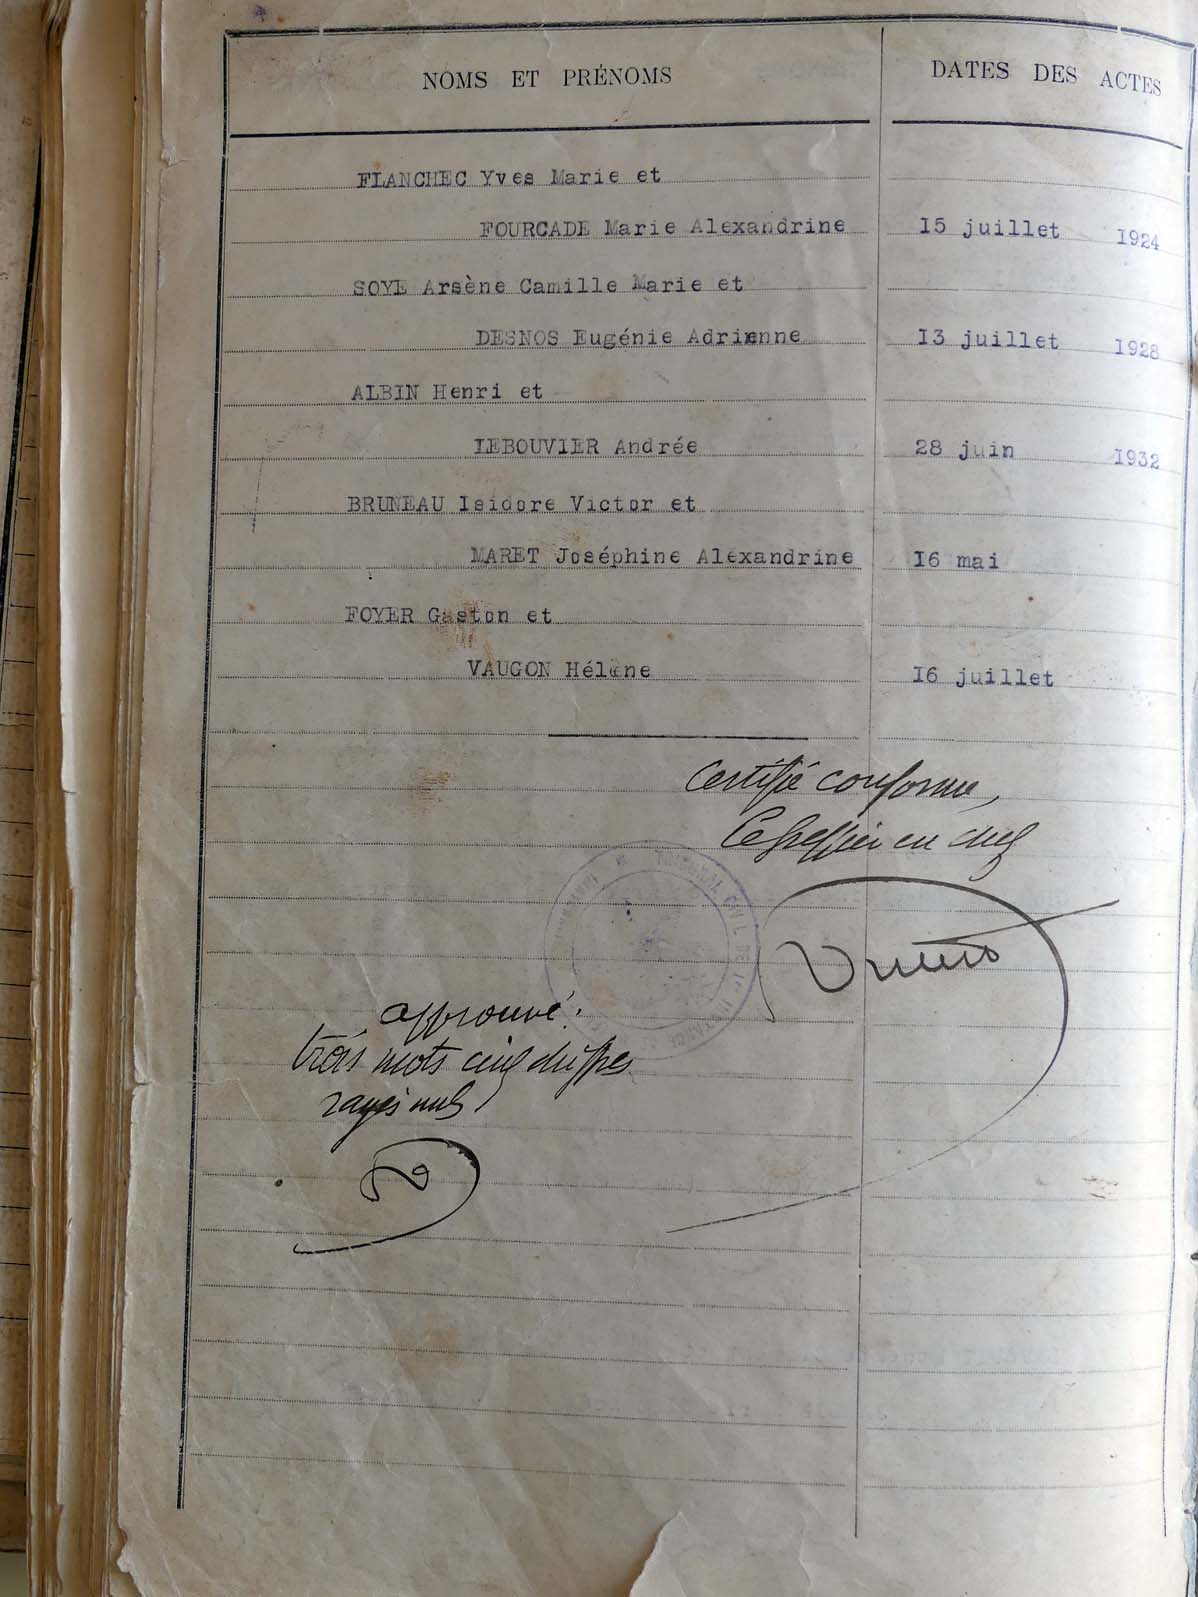 NOMS ET PRÉNOMS DATES DES ACTES
FLANCHEC Yves Marie et
FOURCADE Marie Alexandrine 15 juillet 1924
SOYE Arsène Camille Marie et
DESNOS Eugénie Adrienne 13 juillet 1928
ALBIN Henri et
LEBOUVIER Andrée 28 juin 1932
BRUNEAU Isidore Victor et
MARET Joséphine Alexandrine 16 mai
FOYER Gaston et
VAUGON Hélène 16 juillet
Certifié conforme,
Le greffier en chef
TRIBUNAL CIVIL DE 1re INSTANCE
approuvé:
trois mots cinq chiffres
rayés nuls